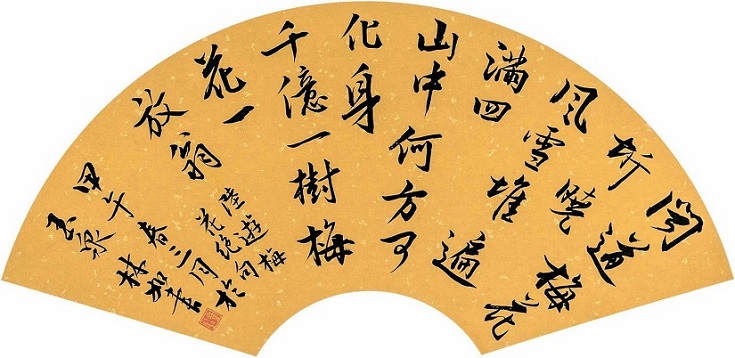 聞道梅花
坼曉
风雪堆遍
滿四
山中何方可
化身
千億一樹梅
花一
放翁
陸遊梅
花絕句於
甲午春三月
玉泉林如書